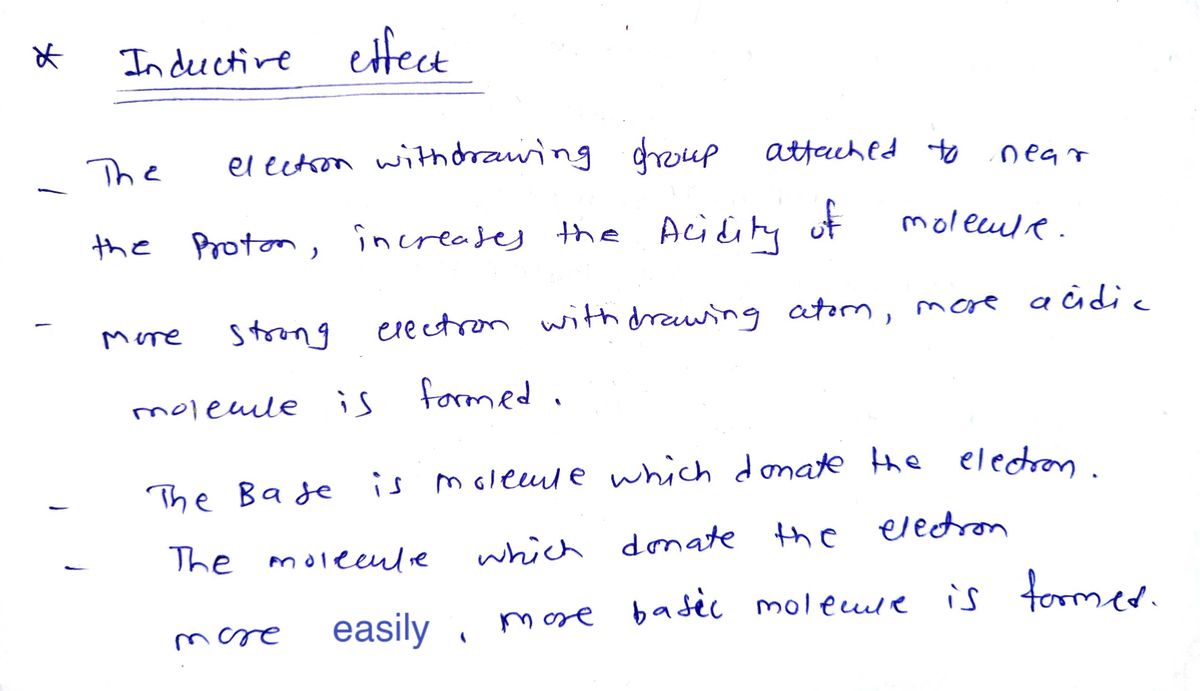 * Inductive effect
- The electron withdrawing group attached to near
the Proton, increases the Acidity of molecule.
- more strong electron withdrawing atom, more acidic
molecule is formed.
- The Base is molecule which donate the electron.
- The molecule which donate the electron
more easily, more basic molecule is formed.